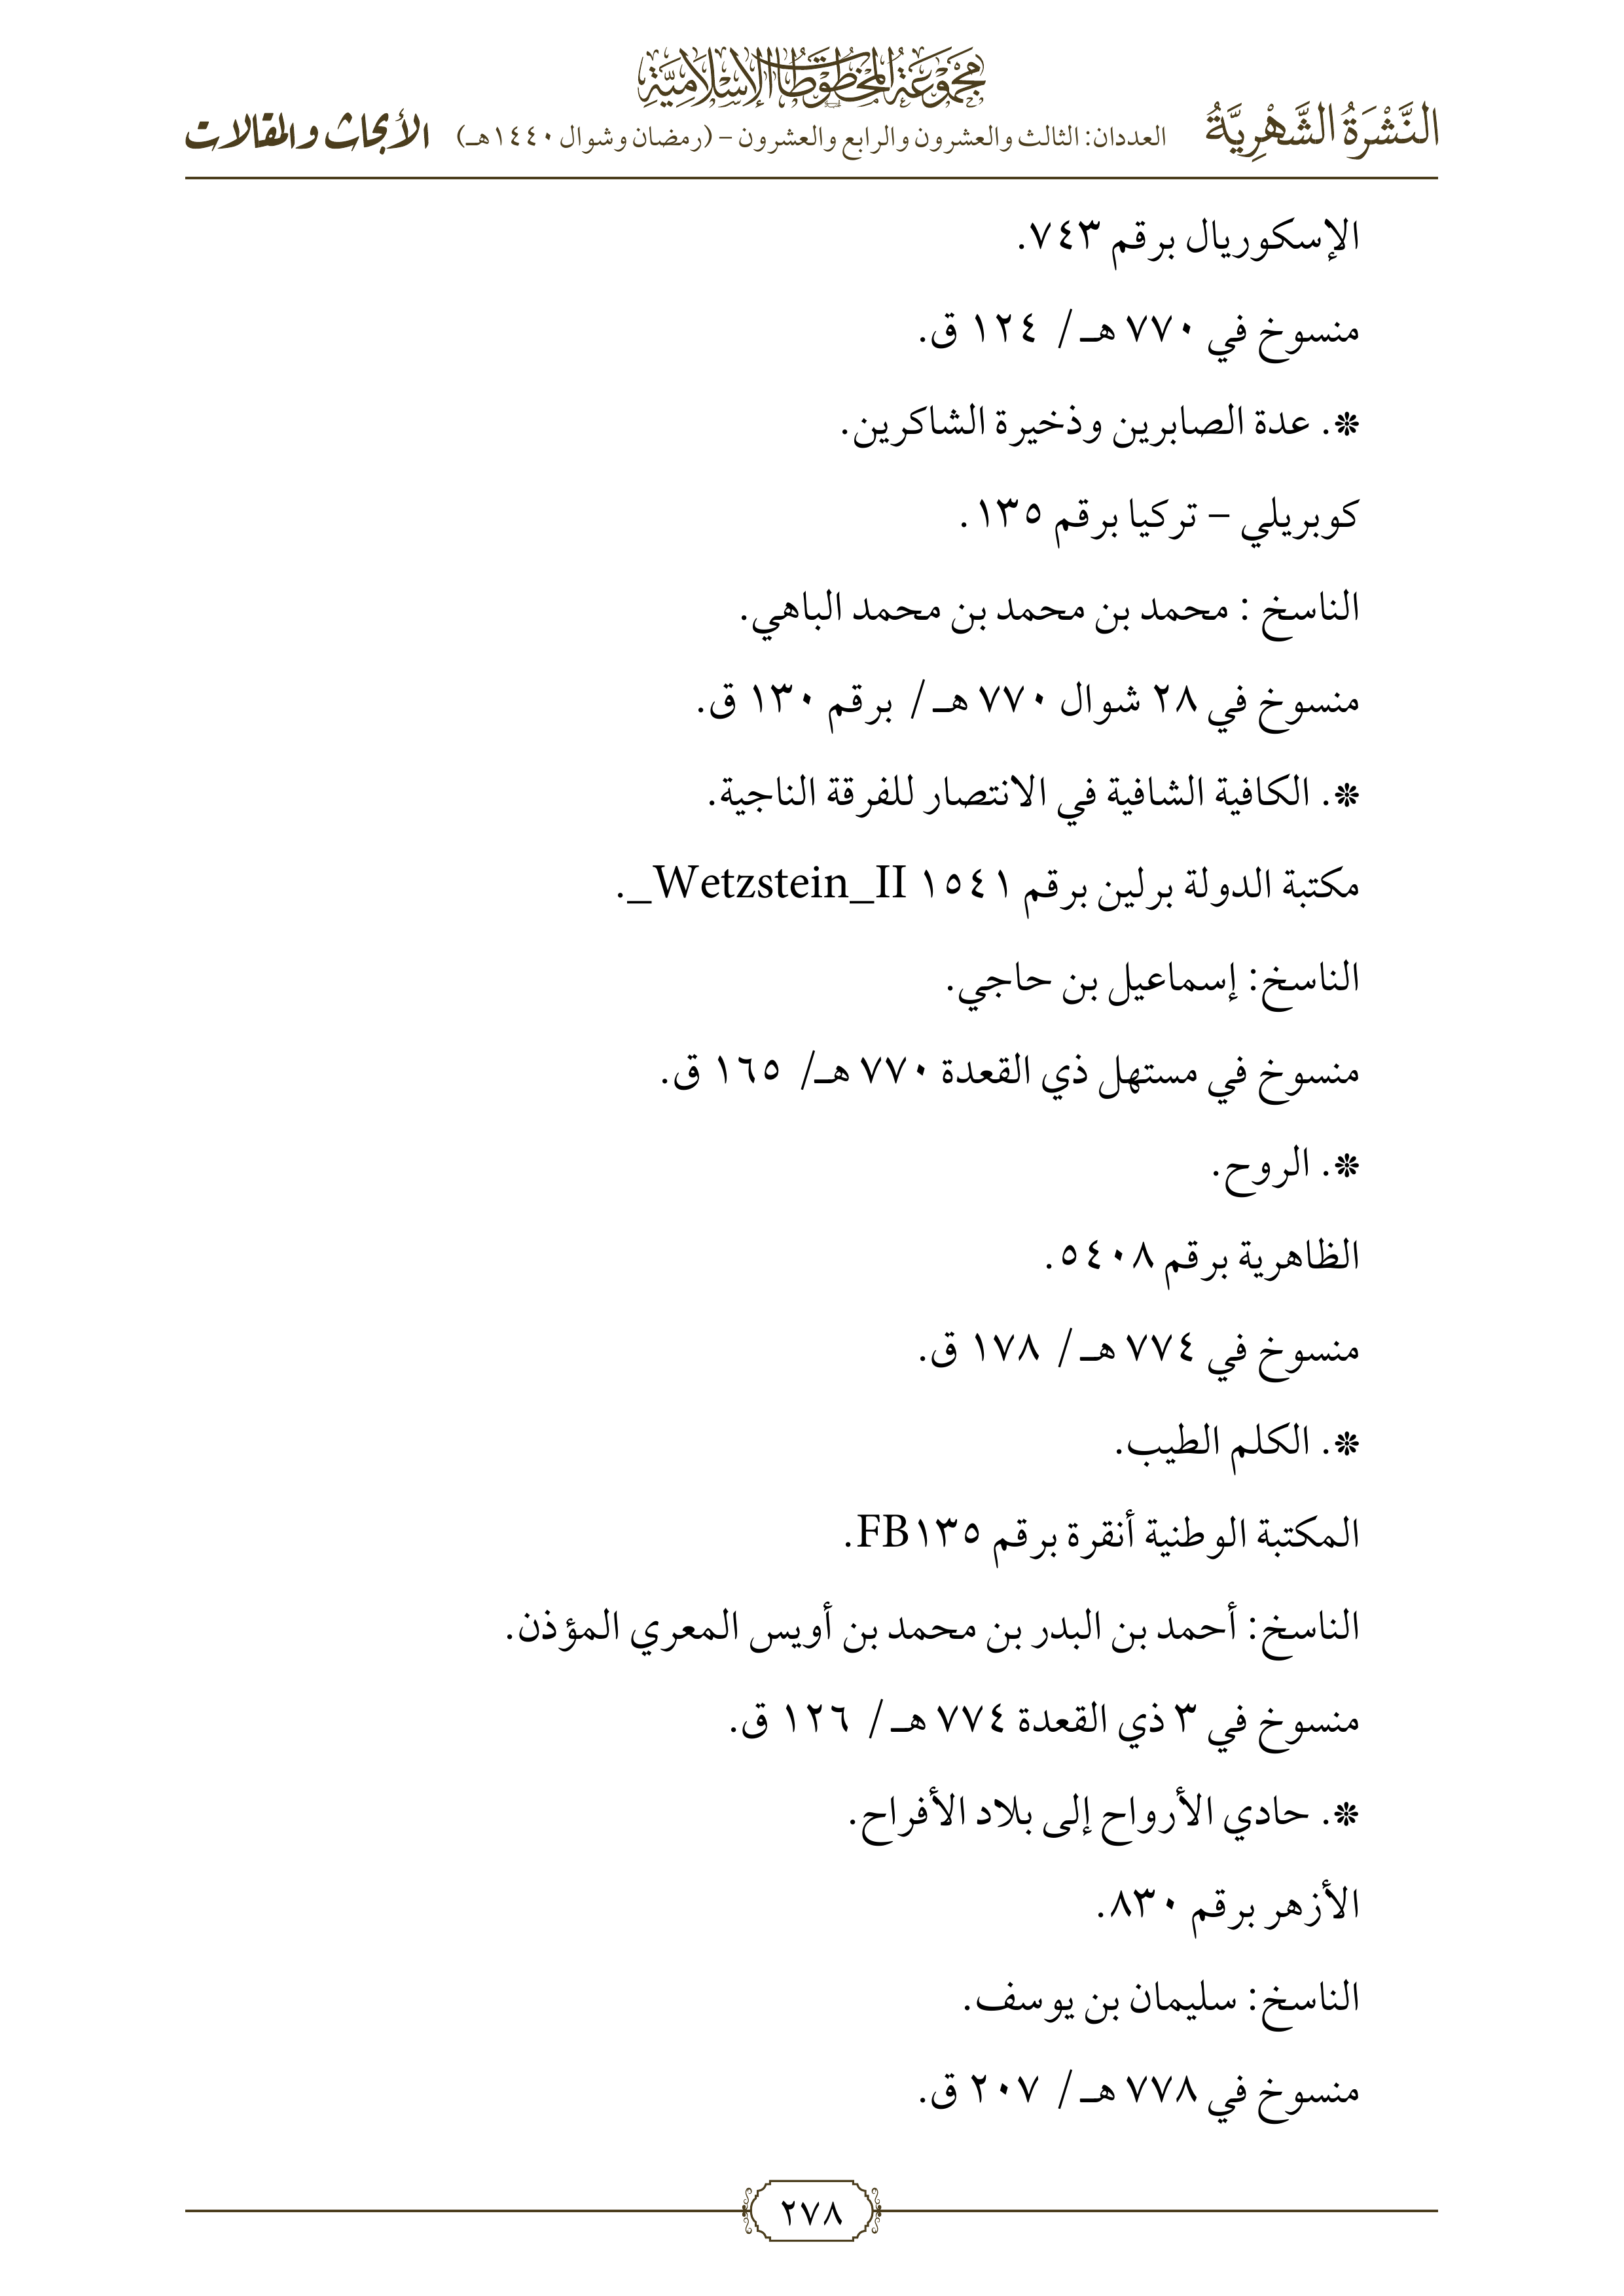 مجموعة المخطوطات الإسلامية
النَّشْرَةُ الشَّهْرِيَّةُ العددان: الثالث والعشرون والرابع والعشرون – (رمضان وشوال ١٤٤٠هـ) الأبحاث والمقالات
الإسكوريال برقم ٧٤٣.
منسوخ في ٧٧٠ هـ / ١٢٤ ق.
❊. عدة الصابرين وذخيرة الشاكرين.
كوبريلي – تركيا برقم ١٣٥.
الناسخ : محمد بن محمد بن محمد الباهي.
منسوخ في ٢٨ شوال ٧٧٠ هـ / برقم ١٣٠ ق.
❊. الكافية الشافية في الانتصار للفرقة الناجية.
مكتبة الدولة برلين برقم ١٥٤١ Wetzstein_II_.
الناسخ: إسماعيل بن حاجي.
منسوخ في مستهل ذي القعدة ٧٧٠ هـ/ ١٦٥ ق.
❊. الروح.
الظاهرية برقم ٥٤٠٨.
منسوخ في ٧٧٤ هـ / ١٧٨ ق.
❊. الكلم الطيب.
المكتبة الوطنية أنقرة برقم FB١٣٥.
الناسخ: أحمد بن البدر بن محمد بن أويس المعري المؤذن.
منسوخ في ٣ ذي القعدة ٧٧٤ هـ / ١٢٦ ق.
❊. حادي الأرواح إلى بلاد الأفراح.
الأزهر برقم ٨٣٠.
الناسخ: سليمان بن يوسف.
منسوخ في ٧٧٨ هـ / ٢٠٧ ق.
٢٧٨